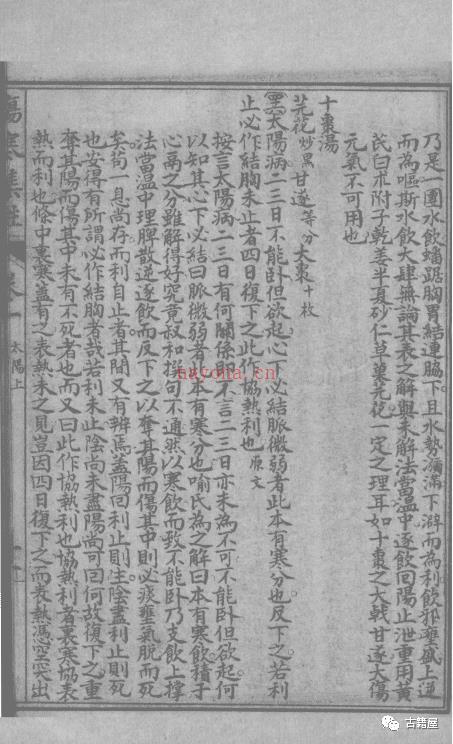 乃是一團水飲蟠踞胸胃結連脇下且水勢瀰滿下澼而為利飲邪壅盛上逆
而為嘔斯水飲大肆無論其表之解與未解法當溫中逐飲回陽止泄重用黃
芪白朮附子乾姜半夏砂仁草菓芫花一定之理耳如十棗之大戟甘遂大傷
元氣不可用也
十棗湯
芫花炒黑甘遂等分大棗十枚
黑太陽病二三日不能臥但欲起心下必結脈微弱者此本有寒分也反下之若利
止必作結胸未止者四日復下之此作協熱利也原文
按言太陽病二三日有何關係即不言二三日亦未為不可不能臥但欲起何
以知其心下必結曰脈微弱者此本有寒分也喻氏為之解曰本有寒飲積于
心膈之分雖解得好究竟叔和撰句不通然以寒飲而致不能臥乃支飲上撐
法當溫中理脾散逆逐飲而反下之以奪其陽而傷其中則必痰壅氣脫而死
矣苟一息尚存而利自止者其間又有辨焉蓋陽回利止則生陰盡利止則死
也安得有所謂必作結胸者哉若利未止陰尚未盡陽尚可回何故復下之重
奪其陽而傷其中未有不死者也而又曰此作協熱利也協熱利者裏寒協表
熱而利也條中裏寒蓋有之表熱未之見豈因四日復下之而表熱憑空突出
太陽上
nayona.cn
古籍屋